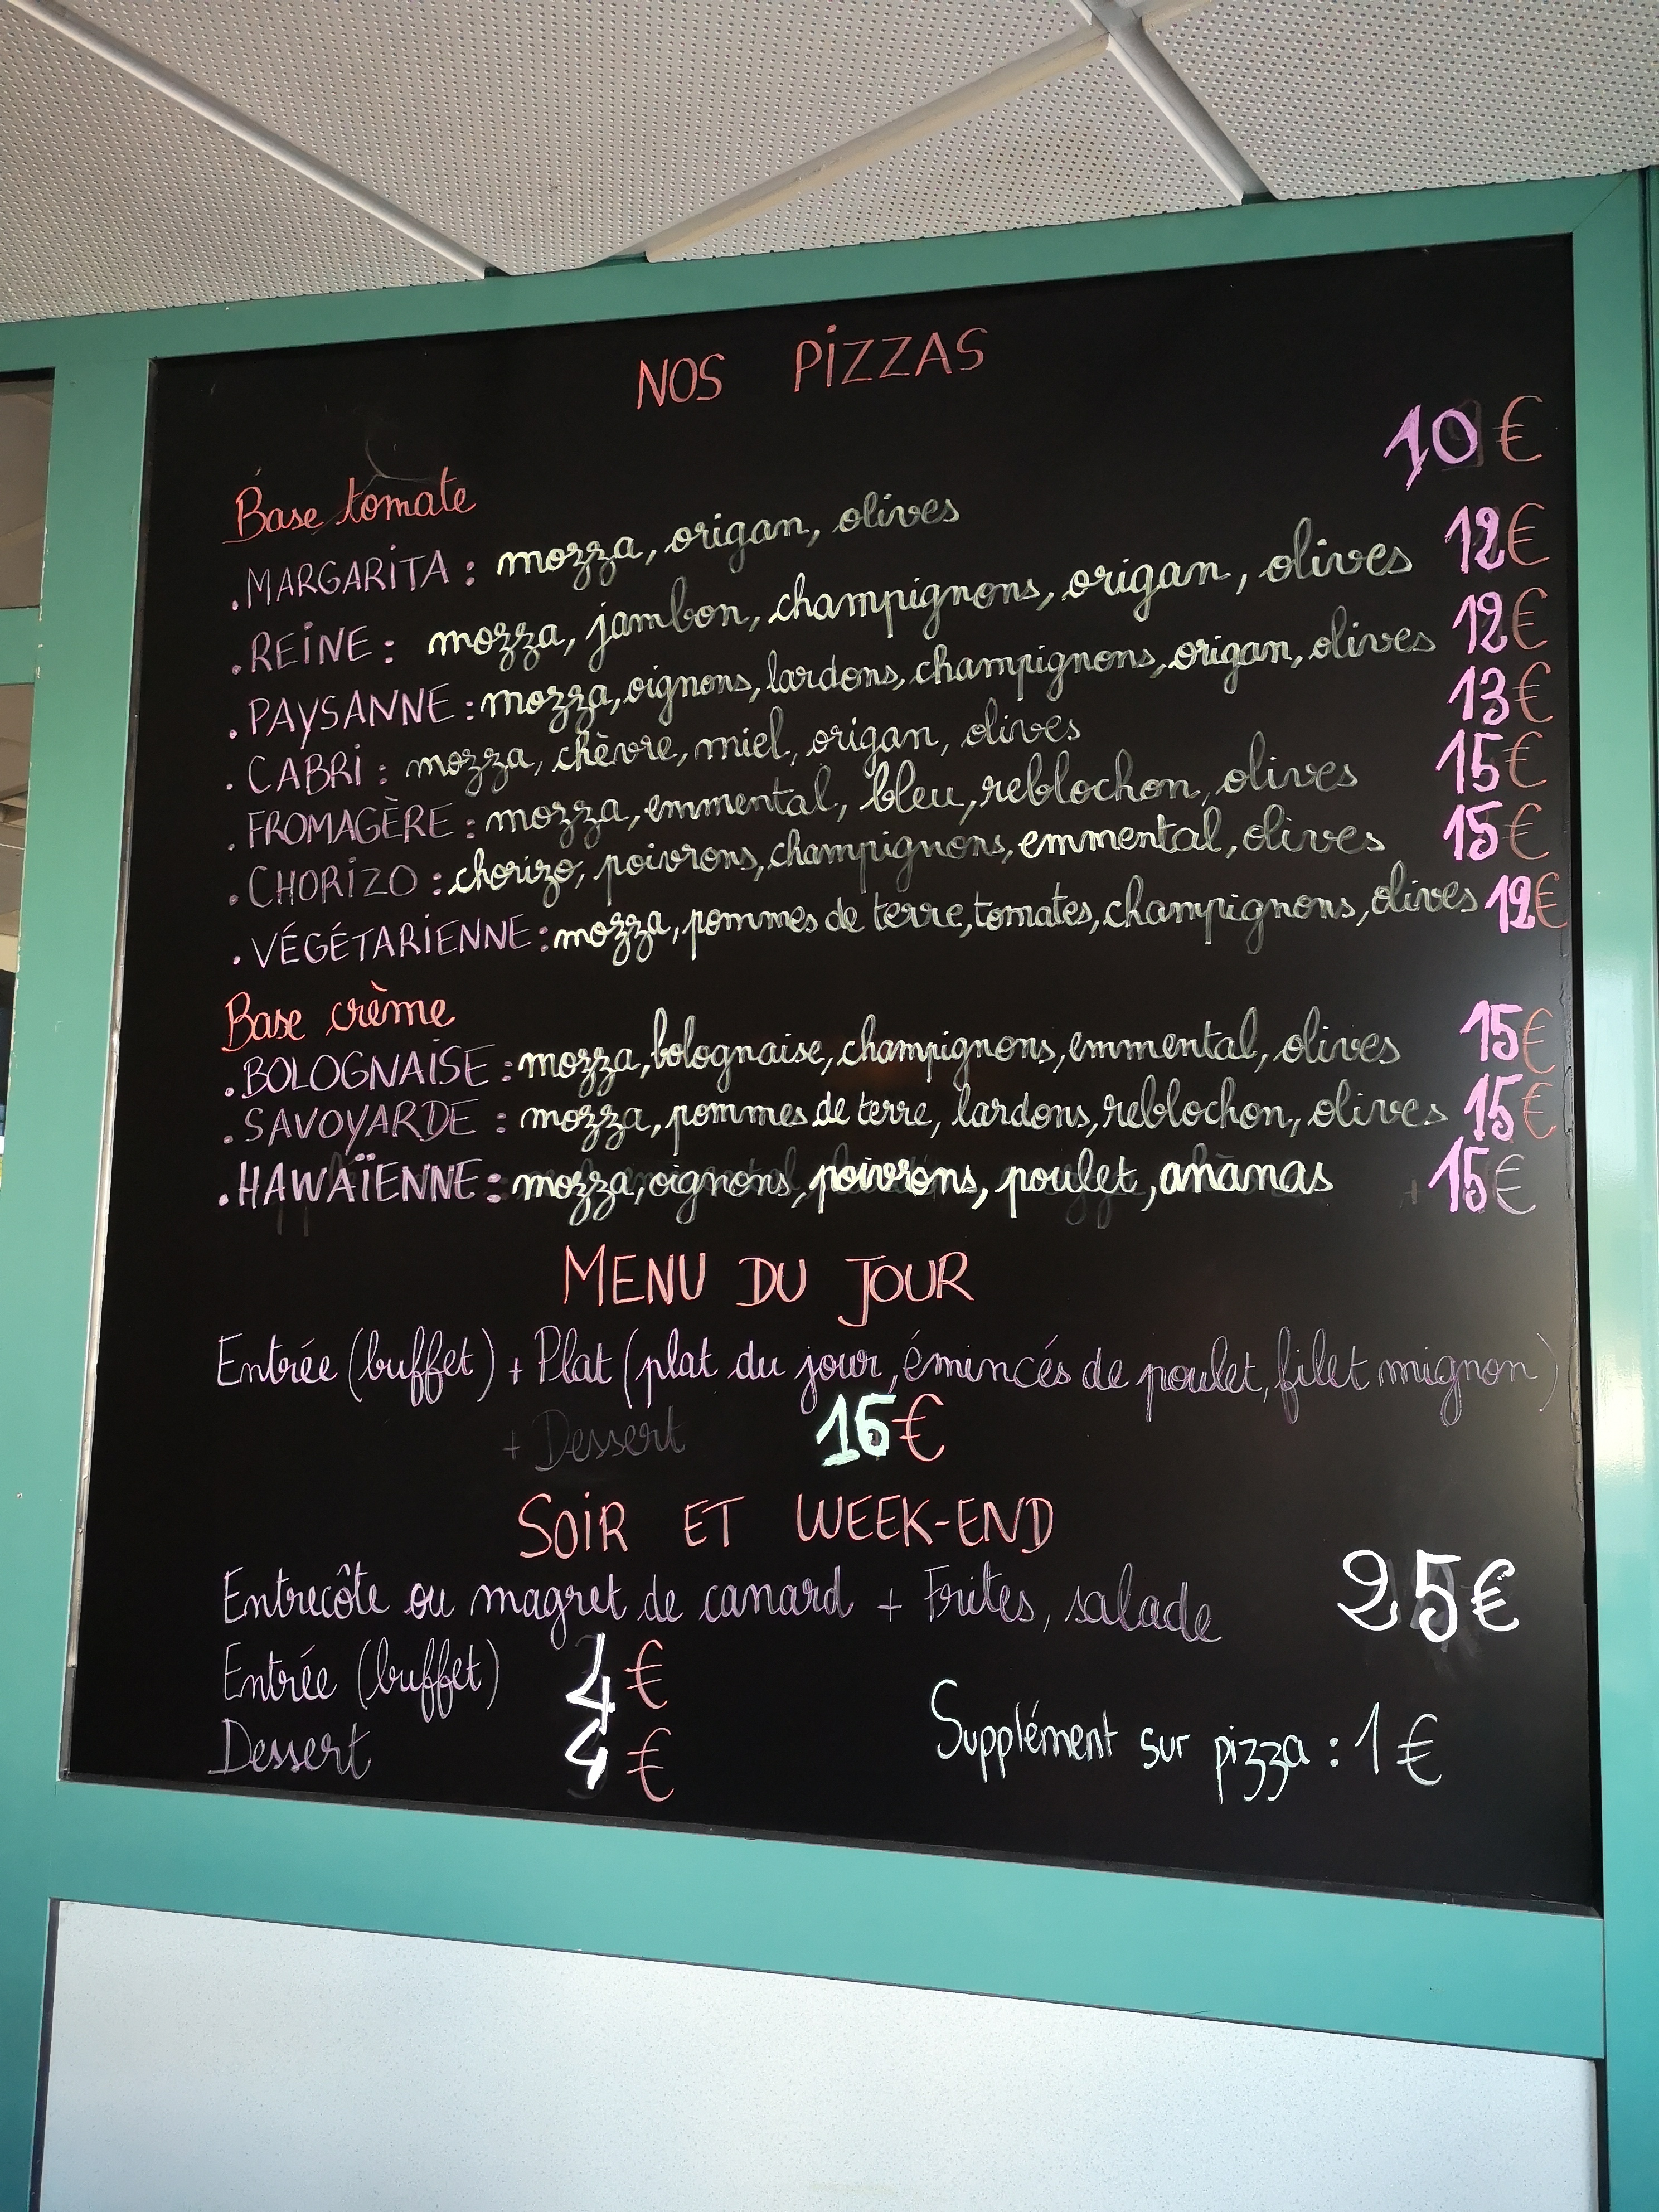 NOS PIZZAS
Base tomate
. MARGARITA : mozza, origan, olives 10€
. REINE : mozza, jambon, champignons, origan, olives 12€
. PAYSANNE : mozza, oignons, lardons, champignons, origan, olives 12€
. CABRI : mozza, chèvre, miel, origan, olives 13€
. FROMAGÈRE : mozza, emmental, bleu, reblochon, olives 15€
. CHORIZO : chorizo, poivrons, champignons, emmental, olives 15€
. VÉGÉTARIENNE : mozza, pommes de terre, tomates, champignons, olives 12€
Base crème
. BOLOGNAISE : mozza, bolognaise, champignons, emmental, olives 15€
. SAVOYARDE : mozza, pommes de terre, lardons, reblochon, olives 15€
. HAWAÏENNE : mozza, oignons, poivrons, poulet, ananas 15€
MENU DU JOUR
Entrée (buffet) + Plat (plat du jour, émincés de poulet, filet mignon)
+ Dessert €
SOIR ET WEEK-END
Entrecôte ou magret de canard + Frites, salade 25€
Entrée (buffet) €
Dessert 4€
Supplément sur pizza : 1€